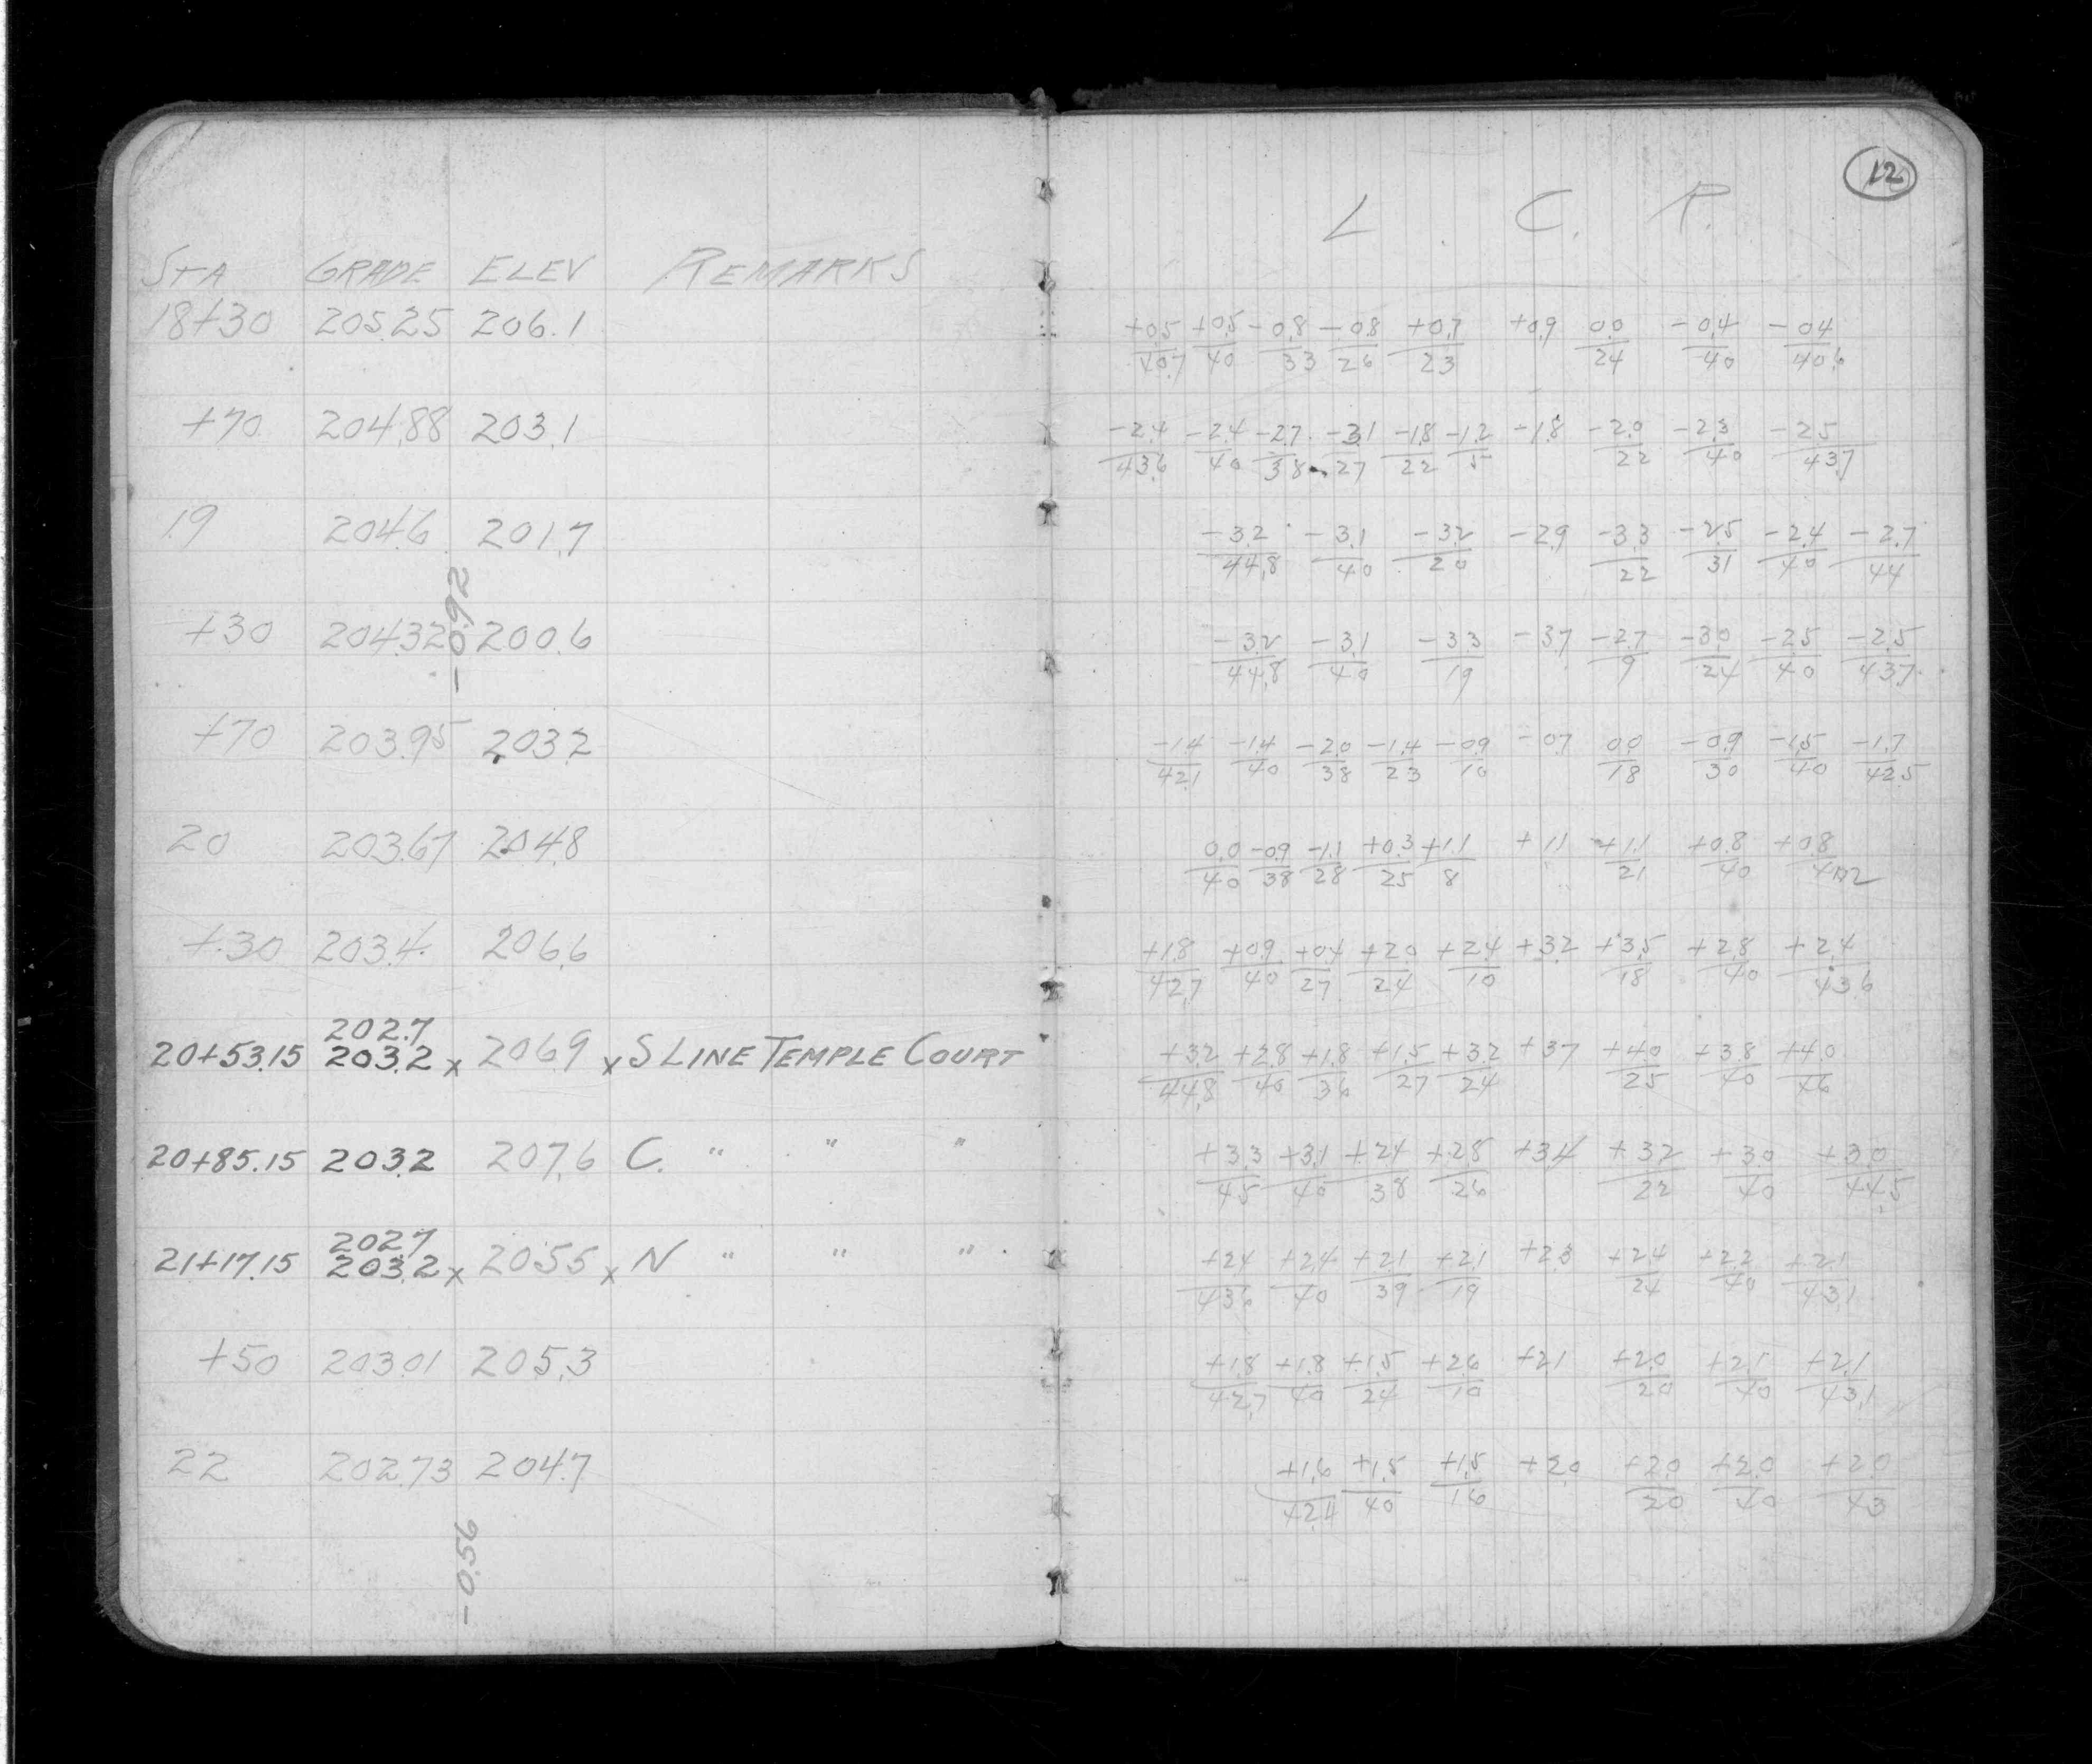 12
L C. R.
STA GRADE ELEV REMARKS
18+30 205.25 206.1 +0.5/40.7 +0.5/40 -0.8/33 -0.8/26 +0.7/23 +0.9 0.0/24 -0.4/40 -0.4/40.6
+70 204.88 203.1 -2.4/43.6 -2.4/40 -2.7/38 -3.1/27 -1.8/22 -1.2/5 -1.8 -2.0/22 -2.3/40 -2.5/43.7
19 204.6 201.7 -3.2/44.8 -3.1/40 -3.2/20 -2.9 -3.3/22 -2.5/31 -2.4/40 -2.7/44
-0.92
+30 204.32 200.6 -3.2/44.8 -3.1/40 -3.3/19 -3.7 -2.7/9 -3.0/24 -2.5/40 -2.5/43.7
+70 203.95 203.2 -1.4/42.1 -1.4/40 -2.0/38 -1.4/23 -0.9/10 -0.7 0.0/18 -0.9/30 -1.5/40 -1.7/42.5
20 203.67 204.8 0.0/40 -0.9/38 -1.1/28 +0.3/25 +1.1/8 +1.1 +1.1/21 +0.8/40 +0.8
+30 203.4 206.6 +1.8/42.7 +0.9/40 +0.4/27 +2.0/24 +2.4/10 +3.2 +3.5/18 +2.8/40 +2.4/43.6
202.7
20+53.15 203.2 x 206.9 x S LINE TEMPLE COURT +3.2/44.8 +2.8/40 +1.8/36 +1.5/27 +3.2/24 +3.7 +4.0/25 +3.8/40 +4.0/46
20+85.15 203.2 207.6 C. " " " +3.3/45 +3.1/40 +2.4/38 +2.8/26 +3.4 +3.2/22 +3.0/40 +3.0/44.5
202.7
21+17.15 203.2 x 205.5 x N " " " +2.4/43.6 +2.4/40 +2.1/39 +2.1/19 +2.3 +2.4/24 +2.2/40 +2.1/43.1
+50 203.01 205.3 +1.8/42.7 +1.8/40 +1.5/24 +2.6/10 +2.1 +2.0/20 +2.1/40 +2.1/43.1
22 202.73 204.7 +1.6/42.4 +1.5/40 +1.5/16 +2.0 +2.0/20 +2.0/40 +2.0/43
-0.56